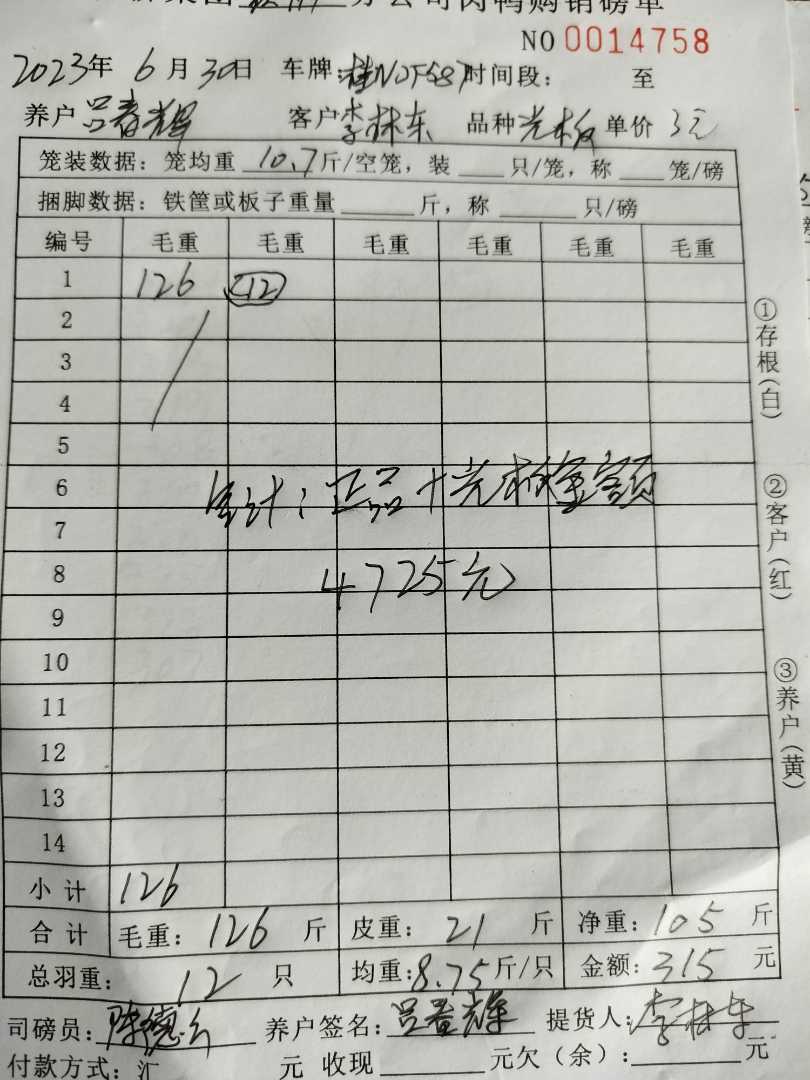 分公司肉鸭购销磅单
NO 0014758
2023年 6月 30日 车牌:桂N2F587 时间段: 至
养户 吕春辉 客户 李林东 品种 光板 单价 3元
笼装数据：笼均重 10.7 斤/空笼，装 只/笼，称 笼/磅
捆脚数据：铁筐或板子重量 斤，称 只/磅
编号 毛重 毛重 毛重 毛重 毛重 毛重
1 126 (12)
2
3
4
5
6
合计：正品+光板金额
7
8 4725元
9
10
11
12
13
14
小计 126
合计 毛重：126 斤 皮重：21 斤 净重：105 斤
总羽重：12 只 均重:8.75斤/只 金额:315 元
司磅员:陈德 养户签名:吕春辉 提货人:李林东
付款方式：汇 元 收现 元欠（余）: 元
①存根(白)
②客户(红)
③养户(黄)